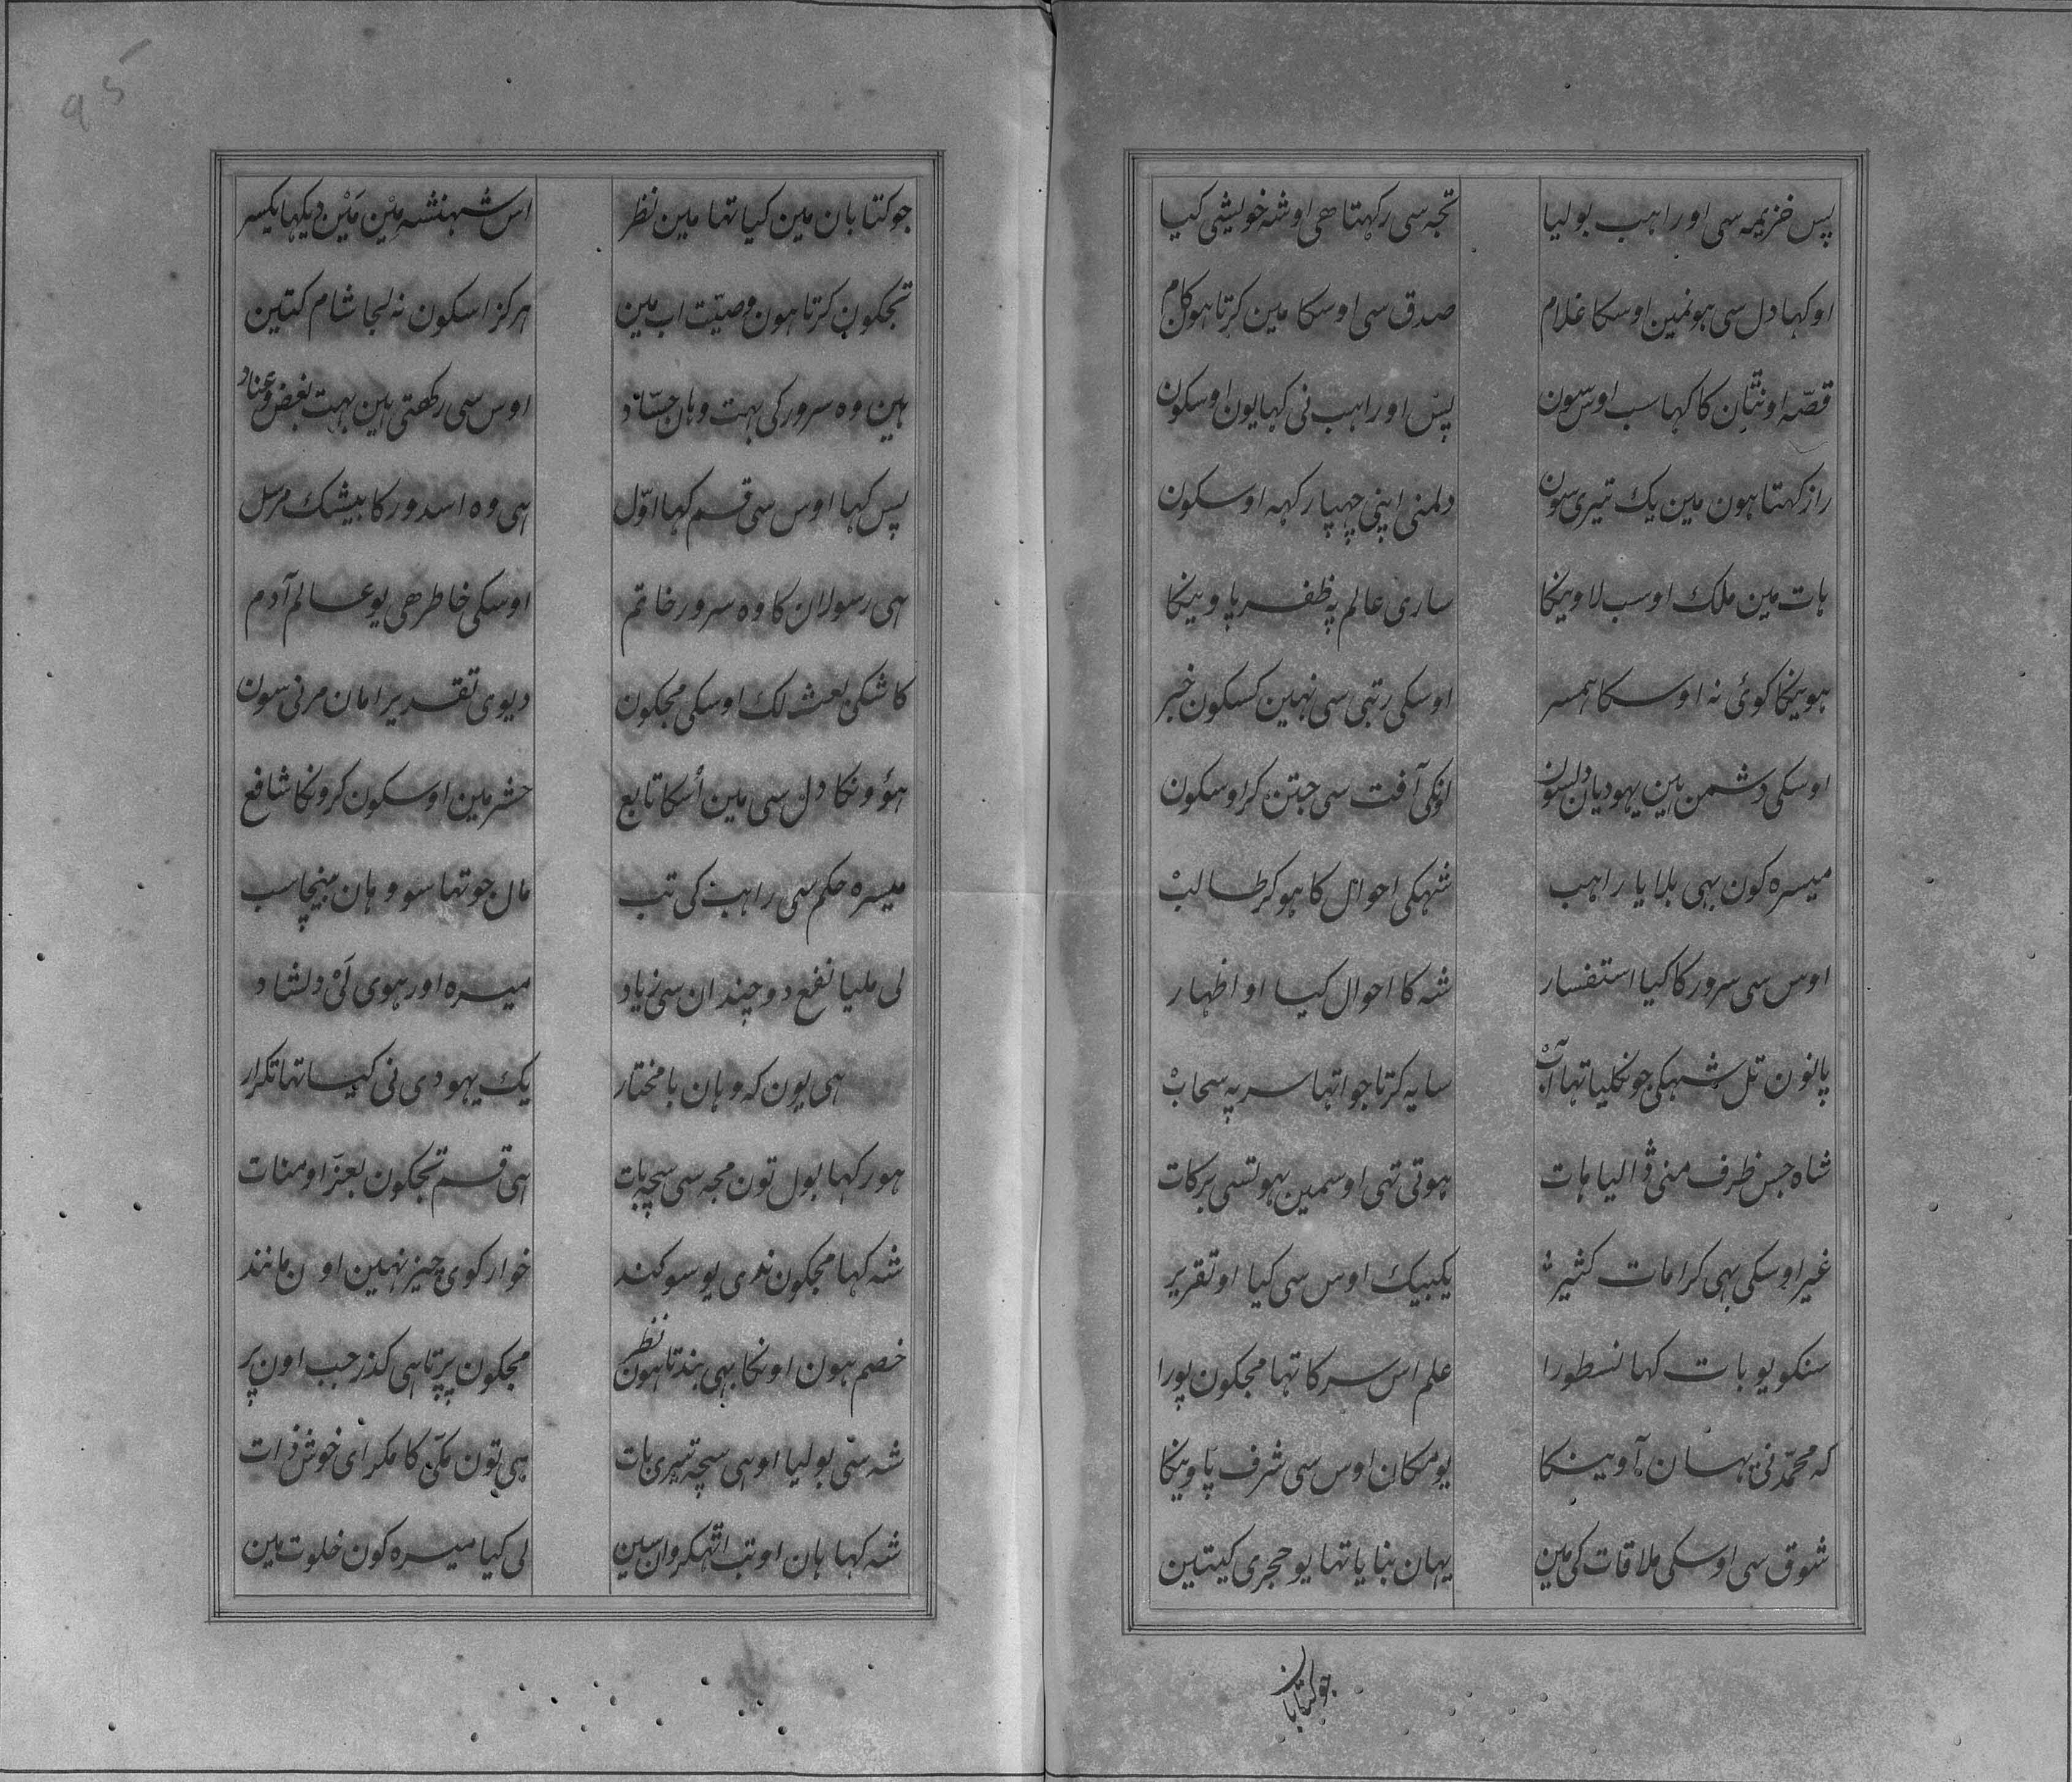 پس خزیمہ سی اوراہب بولیا تجہ سی رکہتا ھی اوشہ خویشی کیا
اوکہا دل سی ہونمین اوسکا غلام صدق سی اوسکا مین کرتا ہو کلام
قصّہ اونتان کا کہا سب اوس سون پس اوراہب نی کہا یون اوسکون
راز کہتا ہون مین یک تیری سون دلمنی اپنی چہپا رکہہ اوسکون
ہات مین ملک اوسب لاوینکا ساری عالم پہ ظفر پاوینکا
ہوینکا کوئی نہ اوسکا ہمسر اوسکی رتبی سی نہین کسکون خبر
اوسکی دشمن ہین یہودیان دلسون اونکی آفت سی جتن کر اوسکون
میسرہ کون بہی بلایا راہب شہکی احوال کا ہوکر طالب
اوس سی سرور کا کیا استفسار شہ کا احوال کیا او اظہار
پانون تل شہکی جو نکلیا تہا آب سایہ کرتا جو اتہا سر پہ سحاب
شاہ جس ظرف منی ڈالیا ہات ہوتی تہی اوسمین بہوتسی برکات
غیر اوسکی بہی کرامات کثیر یکبیک اوس سی کیا او تقریر
سنکو یو بات کہا نسطورا علم اس سر کا تہا مجکون پورا
کہ محمّد نی یہان آوینکا یو مکان اوس سی شرف پاوینکا
شوق سی اوسکی ملاقات کی مین یہان بنایا تہا یو حجری کیتین
جو کتابان
جو کتابان مین کیا تہا مین نظر اس شہنشہ مین مین دیکہا یکسر
تجکون کرتا ہون وصیّت اب مین ہرکز اسکون نہ لیجا شام کتین
ہین وہ سرور کی بہت وہان حسّاد اوس سی رکھتی ہین بہت بغض و عناد
پس کہا اوس سی قسم کہا اوّل ہی وہ اسدور کا بیشک مرسل
ہی رسولان کا وہ سرور خاتم اوسکی خاطر ھی یو عالم آدم
کاشکی بعث لک اوسکی مجکون دیوی تقدیر امان مرنی سون
ہؤونکا دل سی مین اُسکا تابع حشر مین اوسکون کرونکا شافع
میسرہ حکم سی راہب کی تب مال جو تہا سو وہان بیچا سب
لی ملیا نفع دوچندان سی زیاد میسرہ اور ہوی آئی دلشاد
ہی یون کہ وہان بامختار یک یہودی نی کیا تہا تکرار
ہور کہا بول تون مجہ سی سچہ بات ہی قسم تجکون بعزّا و منات
شہ کہا مجکون ندی یو سوکند خوار کوی چیز نہین اون مانند
خصم ہون اونکا بہی بندتا ہون نظر مجکون پرتا ہی کذر جب اون پر
شہ ستی بولیا او ہی سچہ تیری بات ہی تون مکّی کا مکر ای خوش ذات
شہ کہا ہان او تب اتہکر وان سین لی کیا میسرہ کون خلوت مین